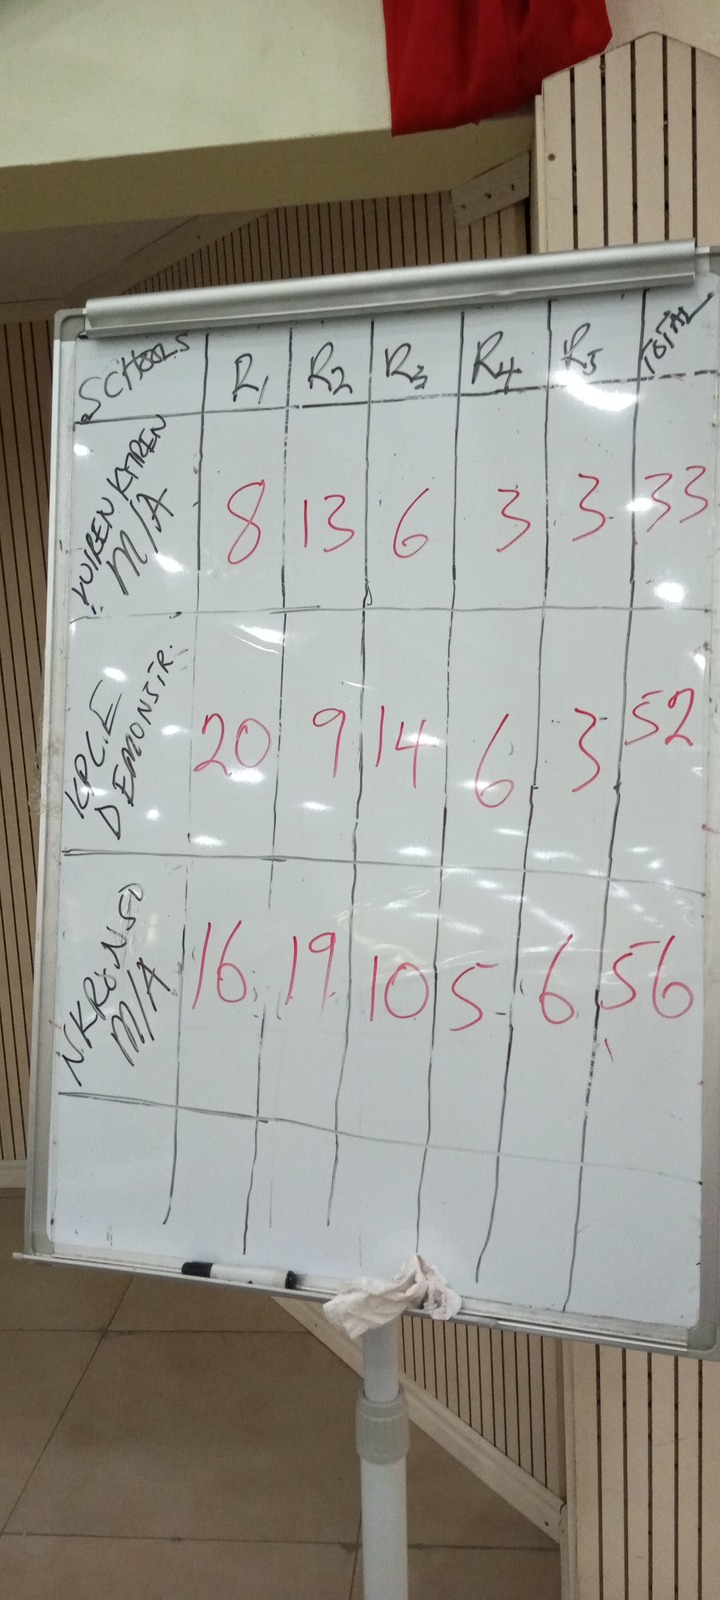 SCHOOLS R1 R2 R3 R4 R5 TOTAL
M/A 8 13 6 3 3 33
DEMONSTR. 20 9 14 6 3 52
NKRONSO
M/A 16 19 10 5 6 56